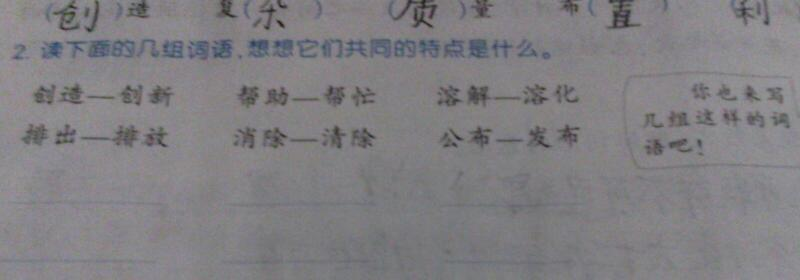 (创)造 复(杂) (质)量 布(置) (利
2. 读下面的几组词语,想想它们共同的特点是什么。
创造—创新 帮助—帮忙 溶解—溶化
排出—排放 消除—清除 公布—发布
你也来写
几组这样的词
语吧!